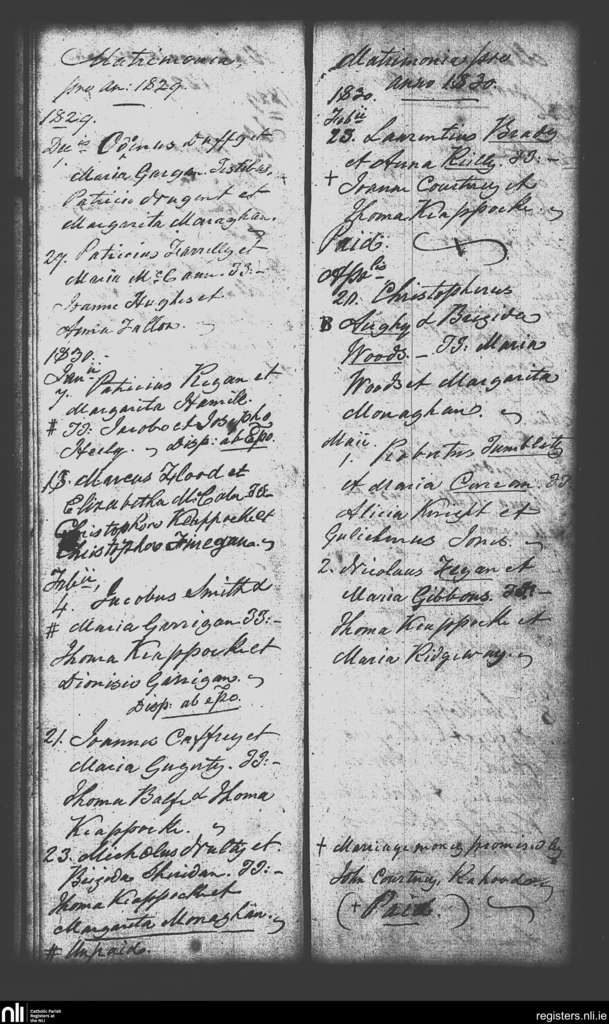 Matrimonia,
pro An: 1829
1829.
Decis Edinus Duffy et
1. Maria Gargan. Testibus,
Patricio Nugent et
Margarita Monaghan.
27. Patricius Farrelly et
Maria McCann. TT:-
Joanne Hughes et
Anna Fallon.
1830.
Janii
7. Patricius Kegan et
Margarita Hamill.
# TT: Jacobo et Josepho
Heely. Disp: ab Epo.
13. Marcus Flood et
Elizabetha McCabe TT-
Christophoro Keappocke et
Christophoro Finegan.
Febii,
4. Jacobus Smith &
# Maria Garrigan TT:-
Thoma Keappocke et
Dionisio Garrigan.
Disp: ab epo.
21. Joannes Caffrey et
Maria Gugerty. TT:-
Thoma Balfe & Thoma
Keappocke.
23. Michælus Nulty et
Brigida Sheridan. TT:-
Thoma Keappocke et
Margarita Monaghan.
# Unpaid.
Matrimonia pro
anno 1830.
1830.
Febii
23. Laurentius Brady
et Anna Reilly TT:-
+ Joanne Courtney et
Thoma Keappocke.
Paid.
Aprlis
20. Christopherus
B & Brigida
Woods. - TT: Maria
Woods et Margarita
Monaghan.
Maii.
1. Robertus Tumblety
et Maria Curran. TT
Alicia Knight et
Gulielmus Jones.
2. Nicolaus Fegan et
Maria Gibbons. TT:-
Thoma Keappocke et
Maria Ridgeway.
+ Marriage money promised by
John Courtney, Rahood
(+ Paid.)
nli Catholic Parish
Registers at
the NLI
registers.nli.ie